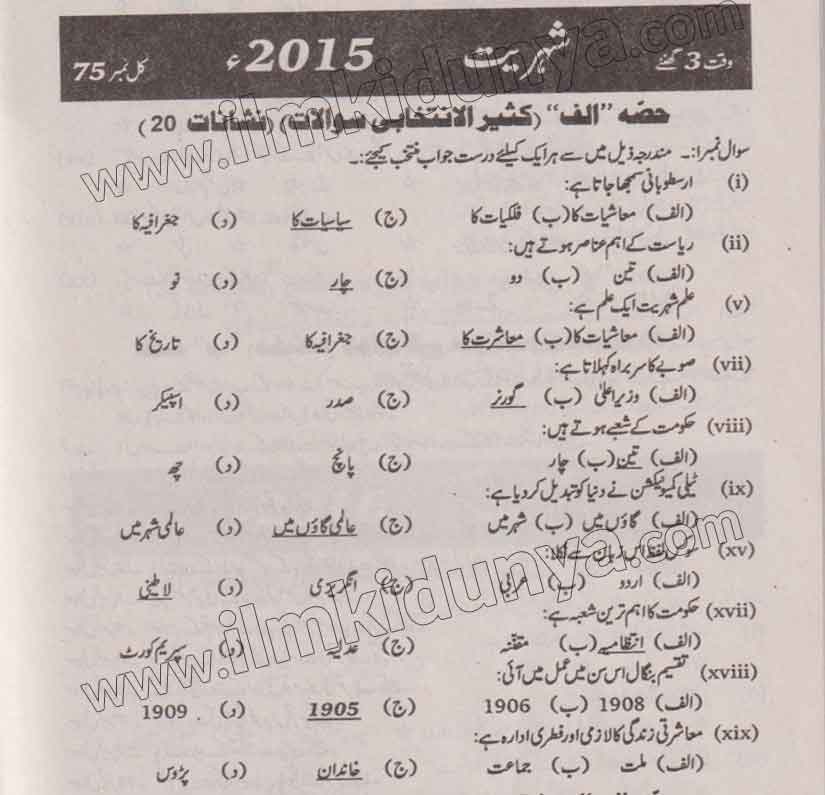 وقت 3 گھنٹے شہریت 2015ء کل نمبر 75
حصّہ "الف" (کثیر الانتخابی سوالات) (نشانات 20)
سوال نمبر1:۔ مندرجہ ذیل میں سے ہر ایک کیلئے درست جواب منتخب کیجئے:۔
(i) ارسطو بانی سمجھا جاتا ہے:
(الف) معاشیات کا (ب) فلکیات کا (ج) سیاسیات کا (د) جغرافیہ کا
(ii) ریاست کے اہم عناصر ہوتے ہیں:
(الف) تین (ب) دو (ج) چار (د) نو
(v) علم شہریت ایک علم ہے:
(الف) معاشیات کا (ب) معاشرت کا (ج) جغرافیہ کا (د) تاریخ کا
(vii) صوبے کا سربراہ کہلاتا ہے:
(الف) وزیر اعلیٰ (ب) گورنر (ج) صدر (د) اسپیکر
(viii) حکومت کے شعبے ہوتے ہیں:
(الف) تین (ب) چار (ج) پانچ (د) چھ
(ix) ٹیلی کمیونیکشن نے دنیا کو تبدیل کر دیا ہے:
(الف) گاؤں میں (ب) شہر میں (ج) عالمی گاؤں میں (د) عالمی شہر میں
(xv) سوس لفظ اس زبان سے نکلا:
(الف) اردو (ب) عربی (ج) انگریزی (د) لاطینی
(xvii) حکومت کا اہم ترین شعبہ ہے:
(الف) انتظامیہ (ب) مقننہ (ج) عدلیہ (د) سپریم کورٹ
(xviii) تقسیم بنگال اس سن میں عمل میں آئی:
(الف) 1908 (ب) 1906 (ج) 1905 (د) 1909
(xix) معاشرتی زندگی کا لازمی اور فطری ادارہ ہے:
(الف) ملت (ب) جماعت (ج) خاندان (د) پڑوس
www.ilmkidunya.com
www.ilmkidunya.com